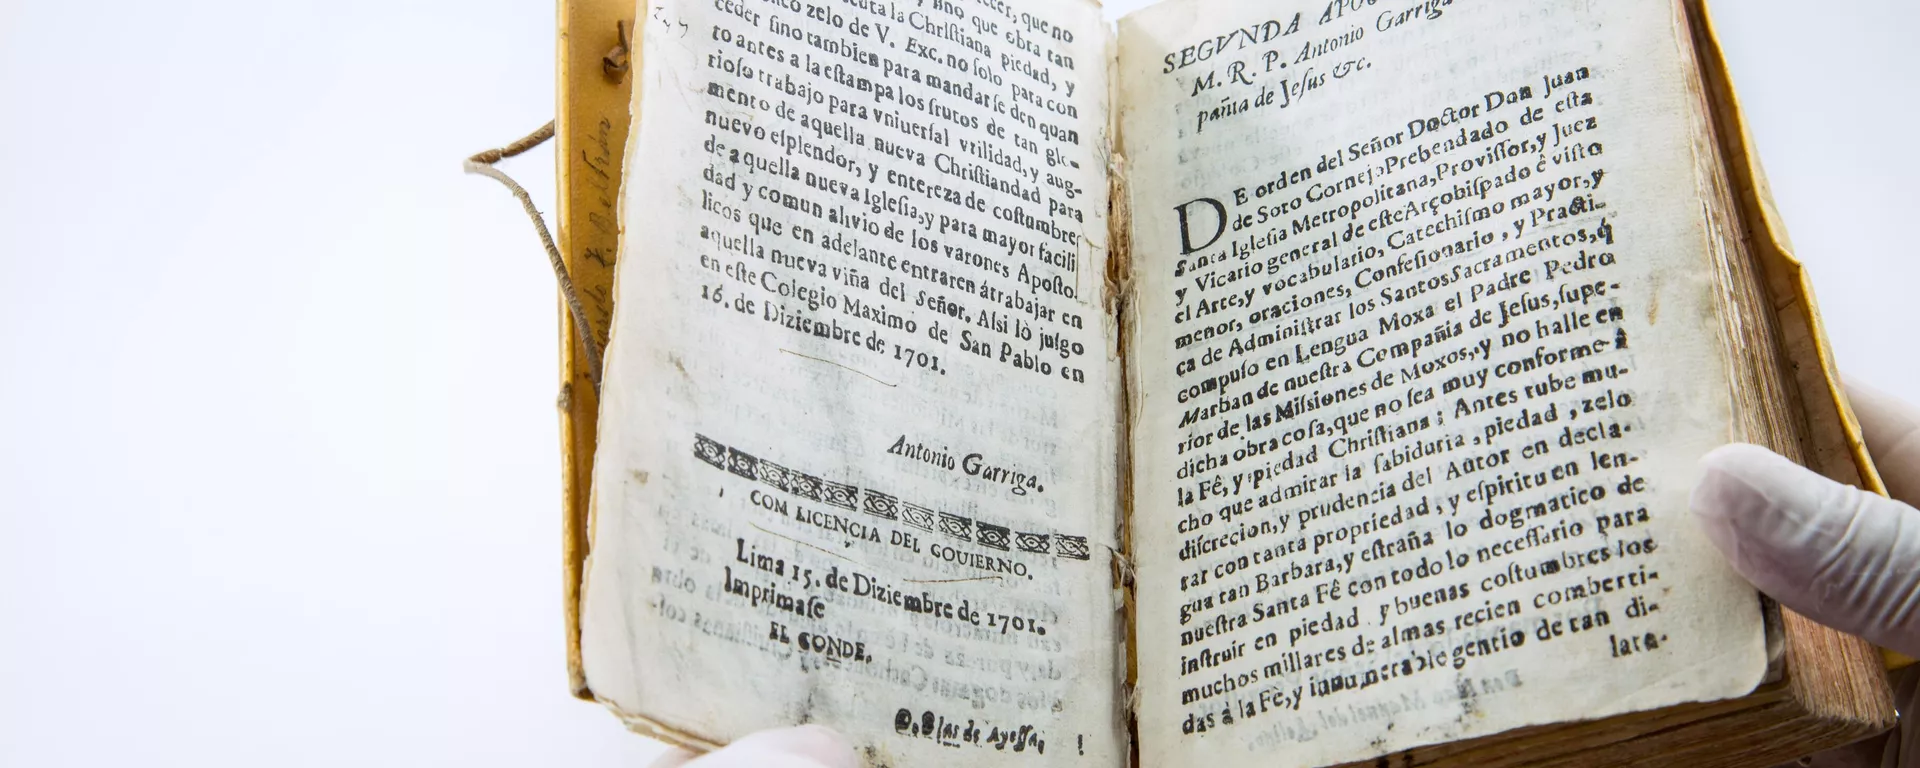 cer, que no
cuta la Christiana piedad, y
co zelo de V. Exc. no solo para con
ceder sino tambien para mandar se den quan
to antes a la estampa los frutos de tan glo-
rioso trabajo para vniuersal vtilidad, y aug-
mento de aquella nueva Christiandad para
nuevo esplendor, y entereza de costumbres
de aquella nueva Iglesia, y para mayor facili
dad y comun alivio de los varones Aposto.
licos que en adelante entraren á trabajar en
aquella nueva viña del Señor. Assi lo juzgo
en este Colegio Maximo de San Pablo en
16. de Diziembre de 1701.
Antonio Garriga.
COM LICENCIA DEL GOUIERNO.
Lima 15. de Diziembre de 1701.
Imprimase
EL CONDE.
D. Blas de Ayessa,
SEGVNDA
M. R. P. Antonio Garriga
pañia de Jesus &c.
DE orden del Señor Doctor Don Juan
de Soto Cornejo Prebendado de esta
Santa Iglesia Metropolitana, Provissor, y Juez
y Vicario general de este Arçobispado ê visto
el Arte, y vocabulario, Catechismo mayor, y
menor, oraciones, Confesionario, y Practi-
ca de Administrar los Santos Sacramentos, q̃
compuso en Lengua Moxa el Padre Pedro
Marban de nuestra Compañia de Jesus, supe-
rior de las Missiones de Moxos, y no halle en
dicha obra cosa, que no sea muy conforme â
la Fê, y piedad Christiana; Antes tube mu-
cho que admirar la sabiduria, piedad, zelo
discrecion, y prudencia del Autor en decla-
rar con tanta propriedad, y espiritu en len-
gua tan Barbara, y estraña lo dogmatico de
nuestra Santa Fê con todo lo necessario para
instruir en piedad y buenas costumbres los
muchos millares de almas recien comberti-
das â la Fè, y innumerable gentio de tan di-
lata-